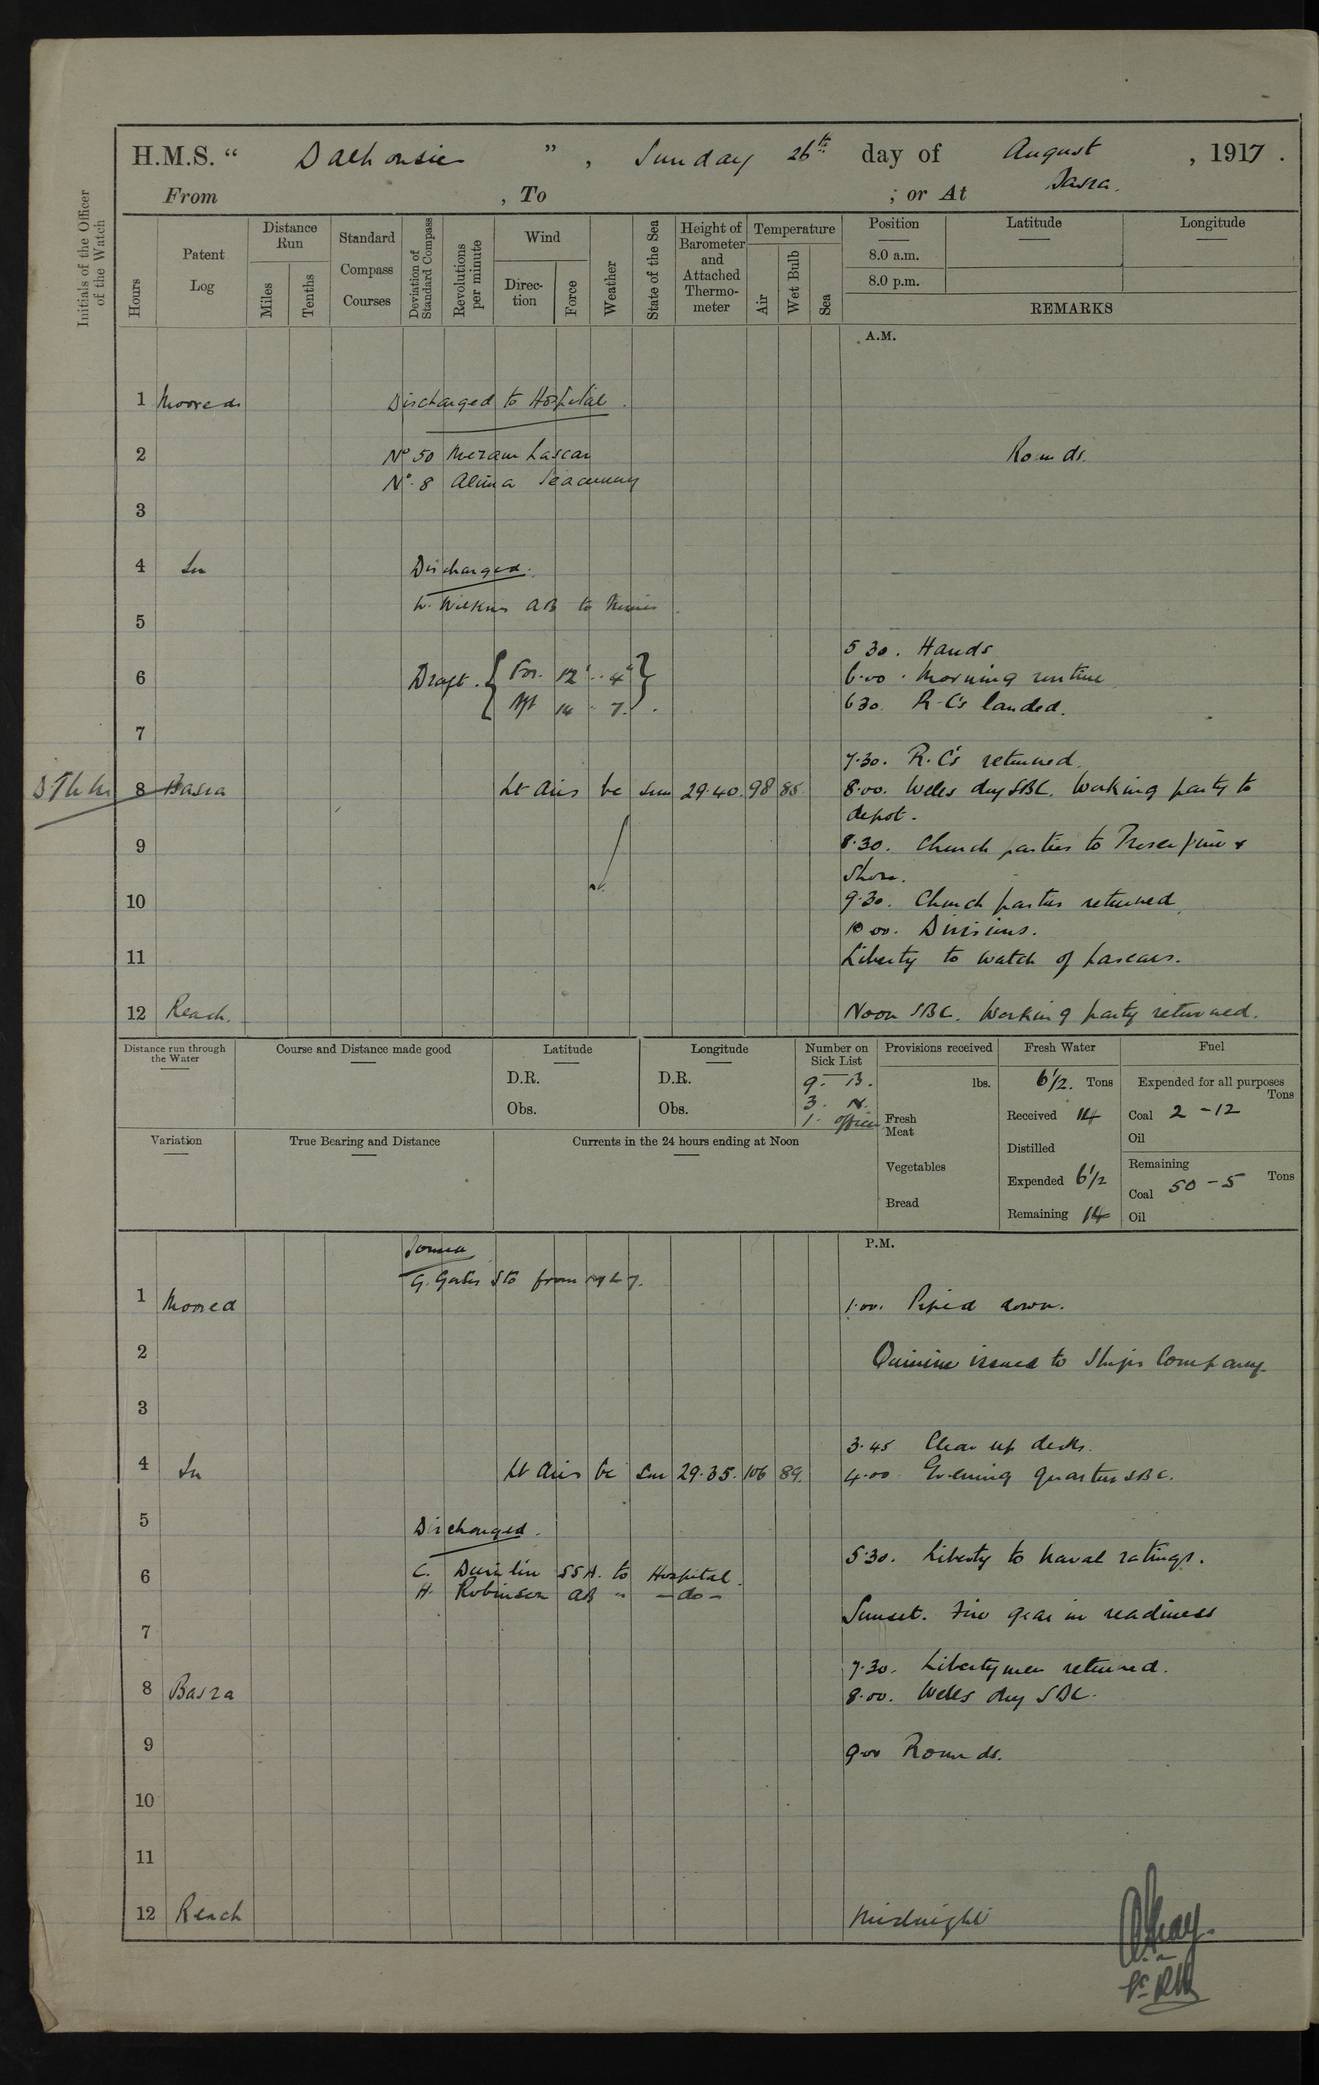 H.M.S. " Dalhousie ", Sunday 26th day of August, 1917.
From , To ; or At Basra.
Initials of the Officer of the Watch
Hours
Patent Log
Distance Run
Miles
Tenths
Standard Compass Courses
Deviation of Standard Compass
Revolutions per minute
Wind
Direction
Force
Weather
State of the Sea
Height of Barometer and Attached Thermometer
Temperature
Air
Wet Bulb
Sea
Position
8.0 a.m.
8.0 p.m.
Latitude
Longitude
REMARKS
A.M.
1 Moored Discharged to Hospital.
2 No 50 Lascar Rounds.
No. 8 Seacunny
3
4 In Discharged.
W. Wilkins AB to
5
5 30. Hands
6 Draft. { For. 12' .. 4" } 6.00. Morning routine
Aft 14 .. 7. 6 30. R.C's landed.
7
7.30. R.C's returned.
8 Basra Lt Airs bc Sm 29.40. 98 85. 8.00. Wells dry SBC. Working party to
depot.
9 8.30. Church parties to Proserpine &
Shore.
10 9.30. Church parties returned.
10.00. Divisions.
11 Liberty to watch of Lascars.
12 Reach. Noon SBC. Working party returned.
Distance run through the Water
Course and Distance made good
Latitude
D.R.
Obs.
Longitude
D.R.
Obs.
Number on Sick List
9. B.
3. N.
1. officer
Provisions received
lbs.
Fresh Meat
Vegetables
Bread
Fresh Water
6 1/2. Tons
Received 14
Distilled
Expended 6 1/2
Remaining 14
Fuel
Expended for all purposes
Tons
Coal 2 - 12
Oil
Remaining
Coal 50 - 5 Tons
Oil
Variation
True Bearing and Distance
Currents in the 24 hours ending at Noon
P.M.
Joined
G. Gates Sto from
1 Moored 1.00. Piped down.
2 Quinine issued to Ships Company.
3
3.45 Clear up decks.
4 In Lt Airs bc Sm 29.35. 106 89. 4.00. Evening quarters SBC.
5 Discharged.
5.30. Liberty to Naval ratings.
6 C. SSA. to Hospital.
H. Robinson AB " - do -
Sunset. Fire gear in readiness
7
7.30. Libertymen returned.
8 Basra 8.00. Wells dry SBC.
9 9.00 Rounds.
10
11
12 Reach Midnight